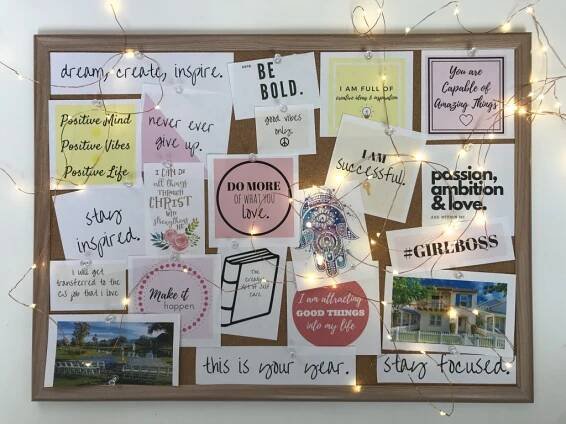 dream, create, inspire.
BE
BOLD.
I AM FULL OF
creative ideas & inspiration
You are
Capable of
Amazing Things
Positive Mind
Positive Vibes
Positive Life
never ever
give up.
good vibes
only.
I AM
successful.
I CAN DO
all things
THROUGH
CHRIST
WHO
strengthens
ME
DO MORE
OF WHAT YOU
love.
passion,
ambition
& love.
stay
inspired.
#GIRLBOSS
i will get
transferred to the
job that i love
Make it
happen
The
I am attracting
GOOD THINGS
into my life
this is your year.
stay focused.